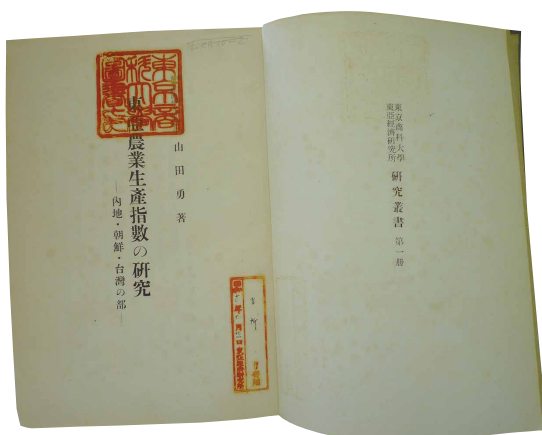 東京商科大學
東亞經濟研究所
研究叢書 第一册
山田勇著
東亞農業生產指數の研究
—內地・朝鮮・台灣の部—